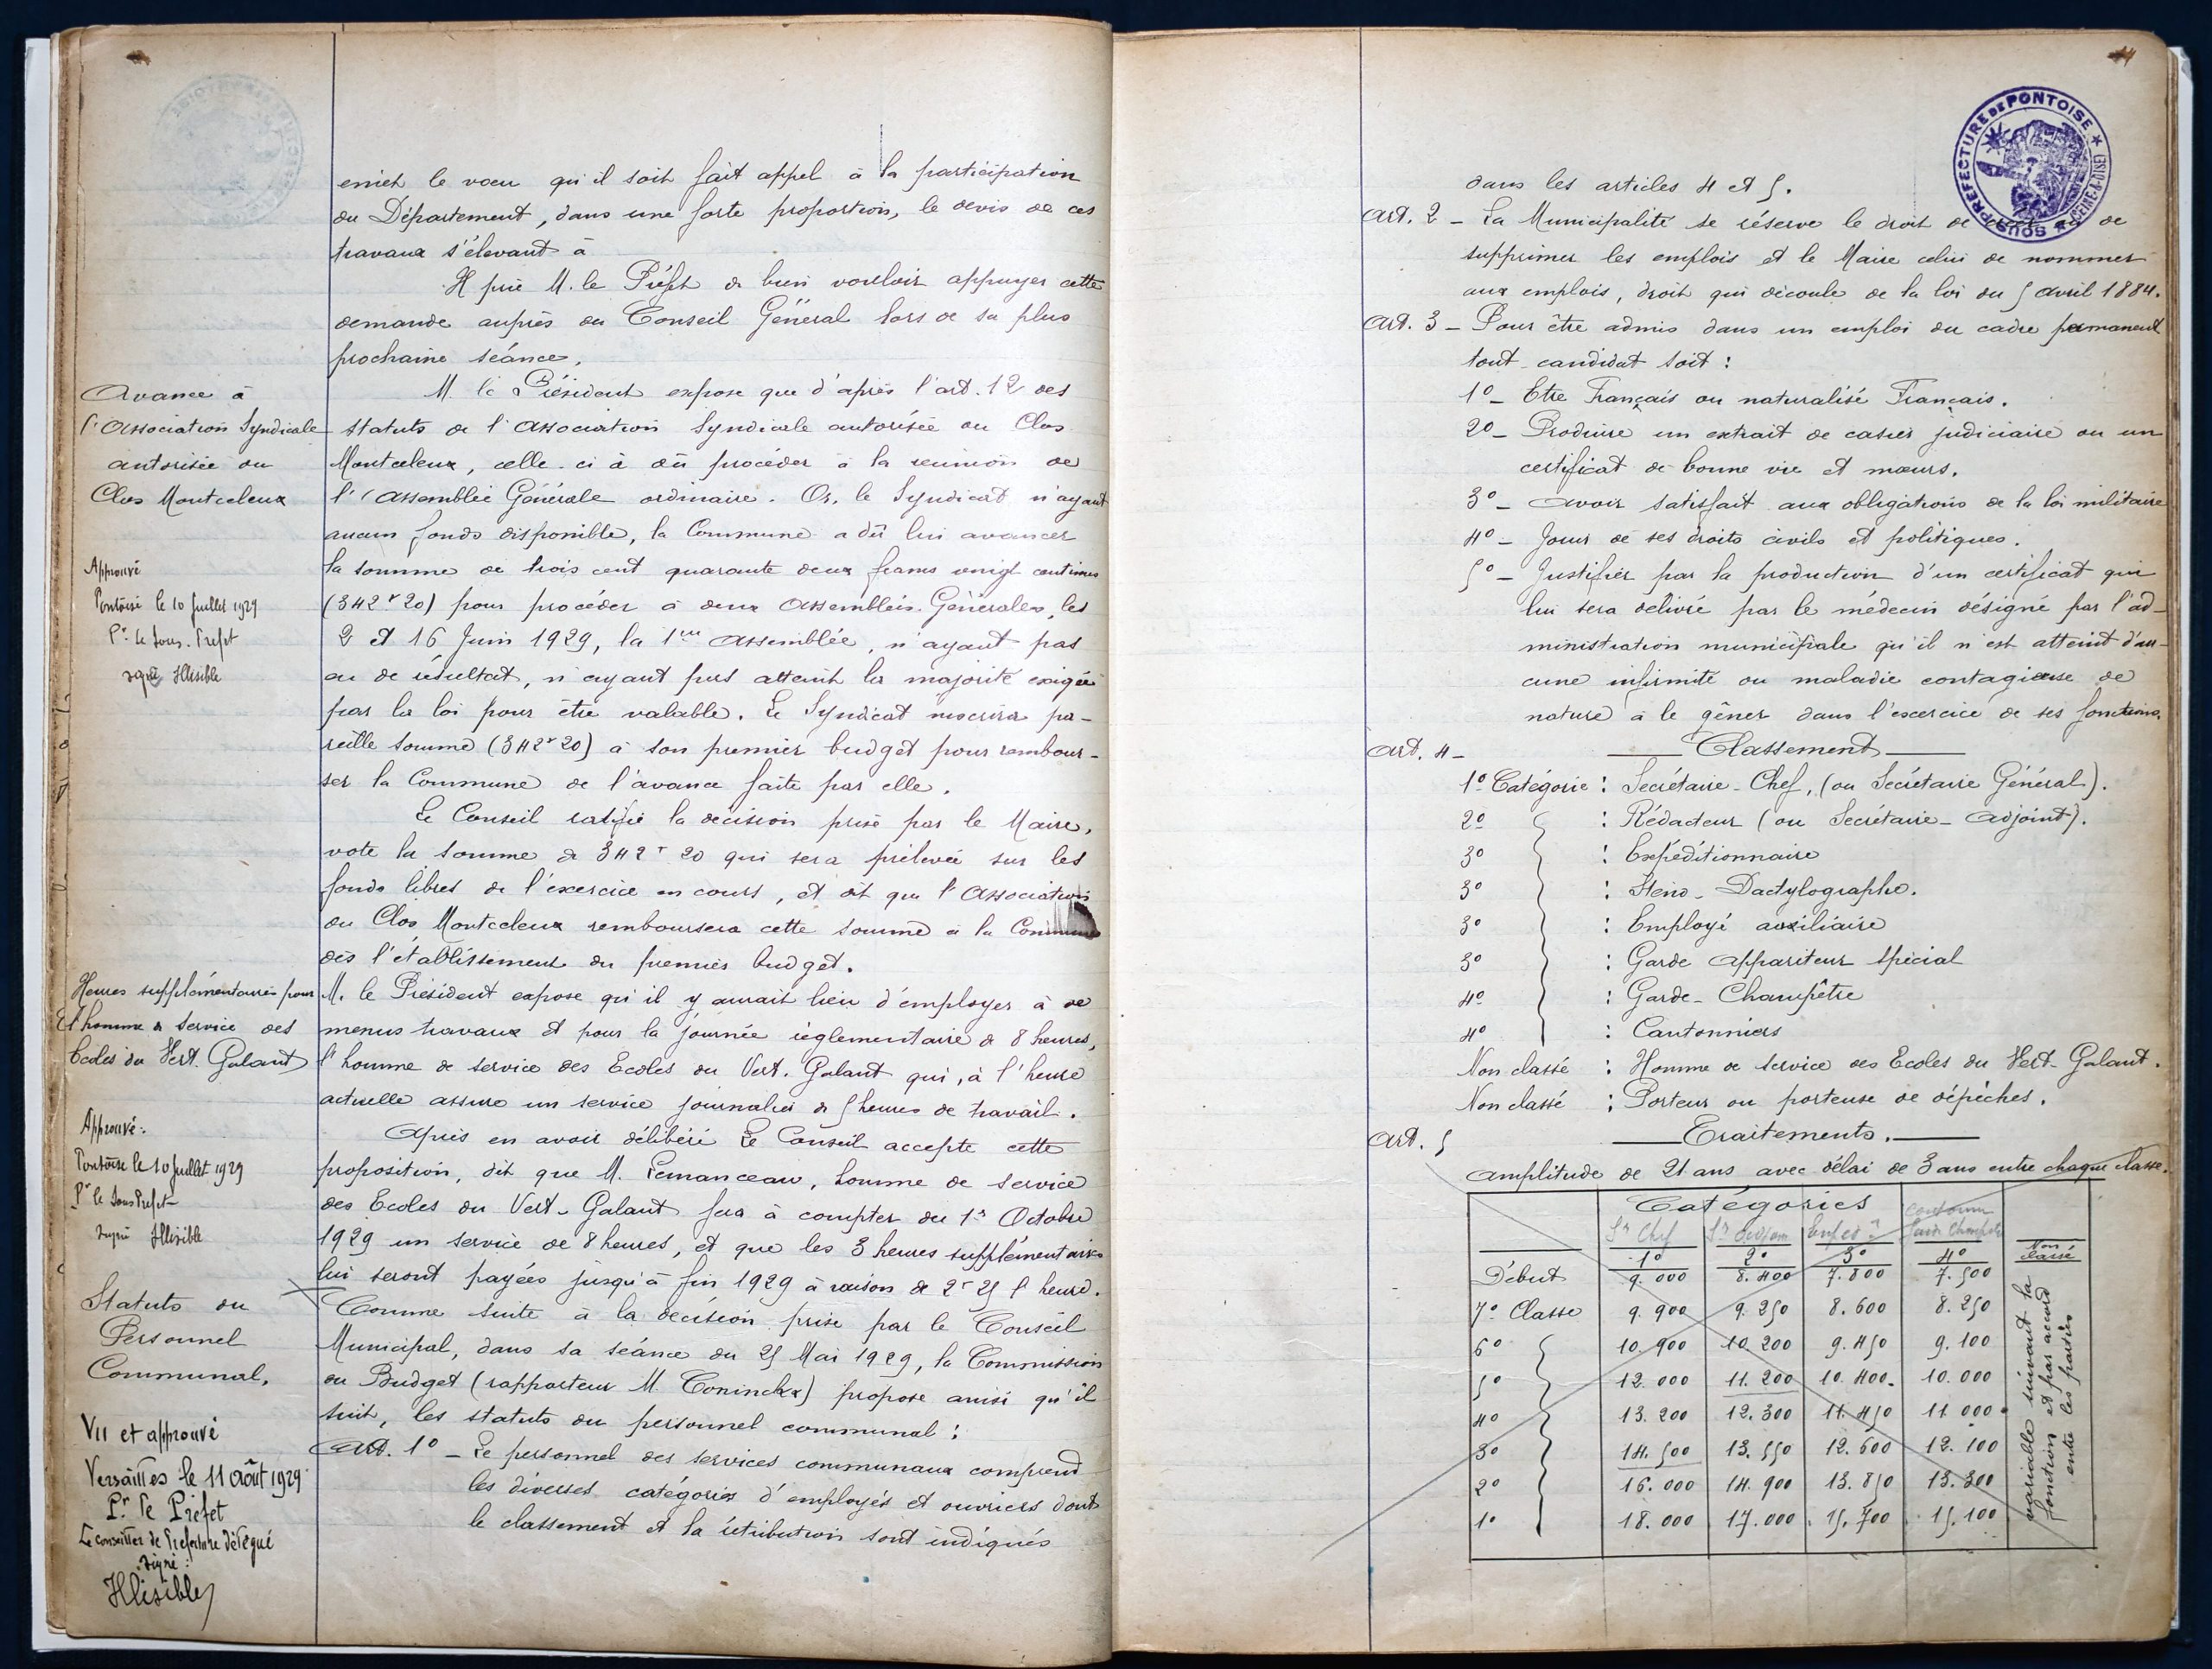 émet le vœu qu'il soit fait appel à la participation
du Département, dans une forte proportion, le devis de ces
travaux s'élevant à
Il prie M. le Préfet de bien vouloir appuyer cette
demande auprès du Conseil Général lors de sa plus
prochaine séance.
Avance à
l'Association Syndicale
autorisée du
Clos Montceleux
M. le Président expose que d'après l'art. 12 des
statuts de l'Association Syndicale autorisée du Clos
Montceleux, celle-ci à dû procéder à la réunion de
l'Assemblée Générale ordinaire. Or, le Syndicat n'ayant
aucun fonds disponible, la Commune a dû lui avancer
la somme de trois cent quarante deux francs vingt centimes
(342 r 20) pour procéder à deux Assemblées Générales, les
2 et 16 Juin 1929, la 1ère Assemblée, n'ayant pas
eu de résultat, n'ayant pas atteint la majorité exigée
par la loi pour être valable. Le Syndicat inscrira pa-
reille somme (342 r 20) à son premier budget pour rembour-
ser la Commune de l'avance faite par elle.
Approuvé
Pontoise le 10 Juillet 1929
Pr le Sous-Préfet
signé Illisible
Le Conseil ratifie la décision prise par le Maire,
vote la somme de 342 r 20 qui sera prélevée sur les
fonds libres de l'exercice en cours, et dit que l'Association
du Clos Montceleux remboursera cette somme à la Commune
dès l'établissement du premier budget.
Heures supplémentaires pour
l'homme de service des
Ecoles du Vert-Galant
M. le Président expose qu'il y aurait lieu d'employer à de
menus travaux et pour la journée réglementaire de 8 heures,
l'homme de service des Ecoles du Vert-Galant qui, à l'heure
actuelle assure un service journalier de 5 heures de travail.
Après en avoir délibéré Le Conseil accepte cette
proposition, dit que M. Lemanceau, homme de service
des Ecoles du Vert-Galant fera à compter du 1er Octobre
1929 un service de 8 heures, et que les 3 heures supplémentaires
lui seront payées jusqu'à fin 1929 à raison de 2 r 25 l'heure.
Approuvé :
Pontoise le 10 Juillet 1929
Pr le Sous Préfet
signé Illisible
Statuts du
Personnel
Communal.
Comme suite à la décision prise par le Conseil
Municipal, dans sa séance du 25 Mai 1929, la Commission
du Budget (rapporteur M. Coninckx) propose ainsi qu'il
suit, les statuts du personnel communal :
Art. 1° - Le personnel des services communaux comprend
les diverses catégories d'employés et ouvriers dont
le classement et la rétribution sont indiqués
Vu et approuvé
Versailles le 11 Août 1929
Pr le Préfet
Le conseiller de Préfecture délégué
signé :
Illisible
SOUS-PRÉFECTURE DE PONTOISE
SEINE-&-OISE
dans les articles 4 et 5.
Art. 2 - La Municipalité se réserve le droit de de
supprimer les emplois et le Maire celui de nommer
aux emplois, droit qui découle de la loi du 5 Avril 1884.
Art. 3 - Pour être admis dans un emploi du cadre permanent
tout candidat soit :
1° - Etre Français ou naturalisé Français.
2° - Produire un extrait de casier judiciaire ou un
certificat de bonne vie et mœurs.
3° - Avoir satisfait aux obligations de la loi militaire
4° - Jouir de ses droits civils et politiques.
5° - Justifier par la production d'un certificat qui
lui sera délivré par le médecin désigné par l'ad-
ministration municipale qu'il n'est atteint d'au-
cune infirmité ou maladie contagieuse de
nature à le gêner dans l'exercice de ses fonctions.
Art. 4 - Classement
1° Catégorie : Secrétaire-Chef, (ou Secrétaire Général).
2° : Rédacteur (ou Secrétaire-Adjoint).
3° : Expéditionnaire
3° : Sténo-Dactylographe.
3° : Employé auxiliaire
3° : Garde Appariteur Spécial
4° : Garde-Champêtre
4° : Cantonniers
Non classé : Homme de service des Ecoles du Vert-Galant.
Non classé : Porteur ou porteuse de dépêches.
Art. 5 Traitements.
Amplitude de 21 ans avec délai de 3 ans entre chaque classe.
Catégories
1° 2° 3° 4° Non classé
Début 9.000 8.400 7.800 7.500
7° Classe 9.900 9.250 8.600 8.250
6° 10.900 10.200 9.450 9.100
5° 12.000 11.200 10.400 10.000
4° 13.200 12.300 11.450 11.000
3° 14.500 13.550 12.600 12.100
2° 16.000 14.900 13.850 13.300
1° 18.000 17.000 15.700 15.100
variable suivant la
fonction et par accord
entre les parties